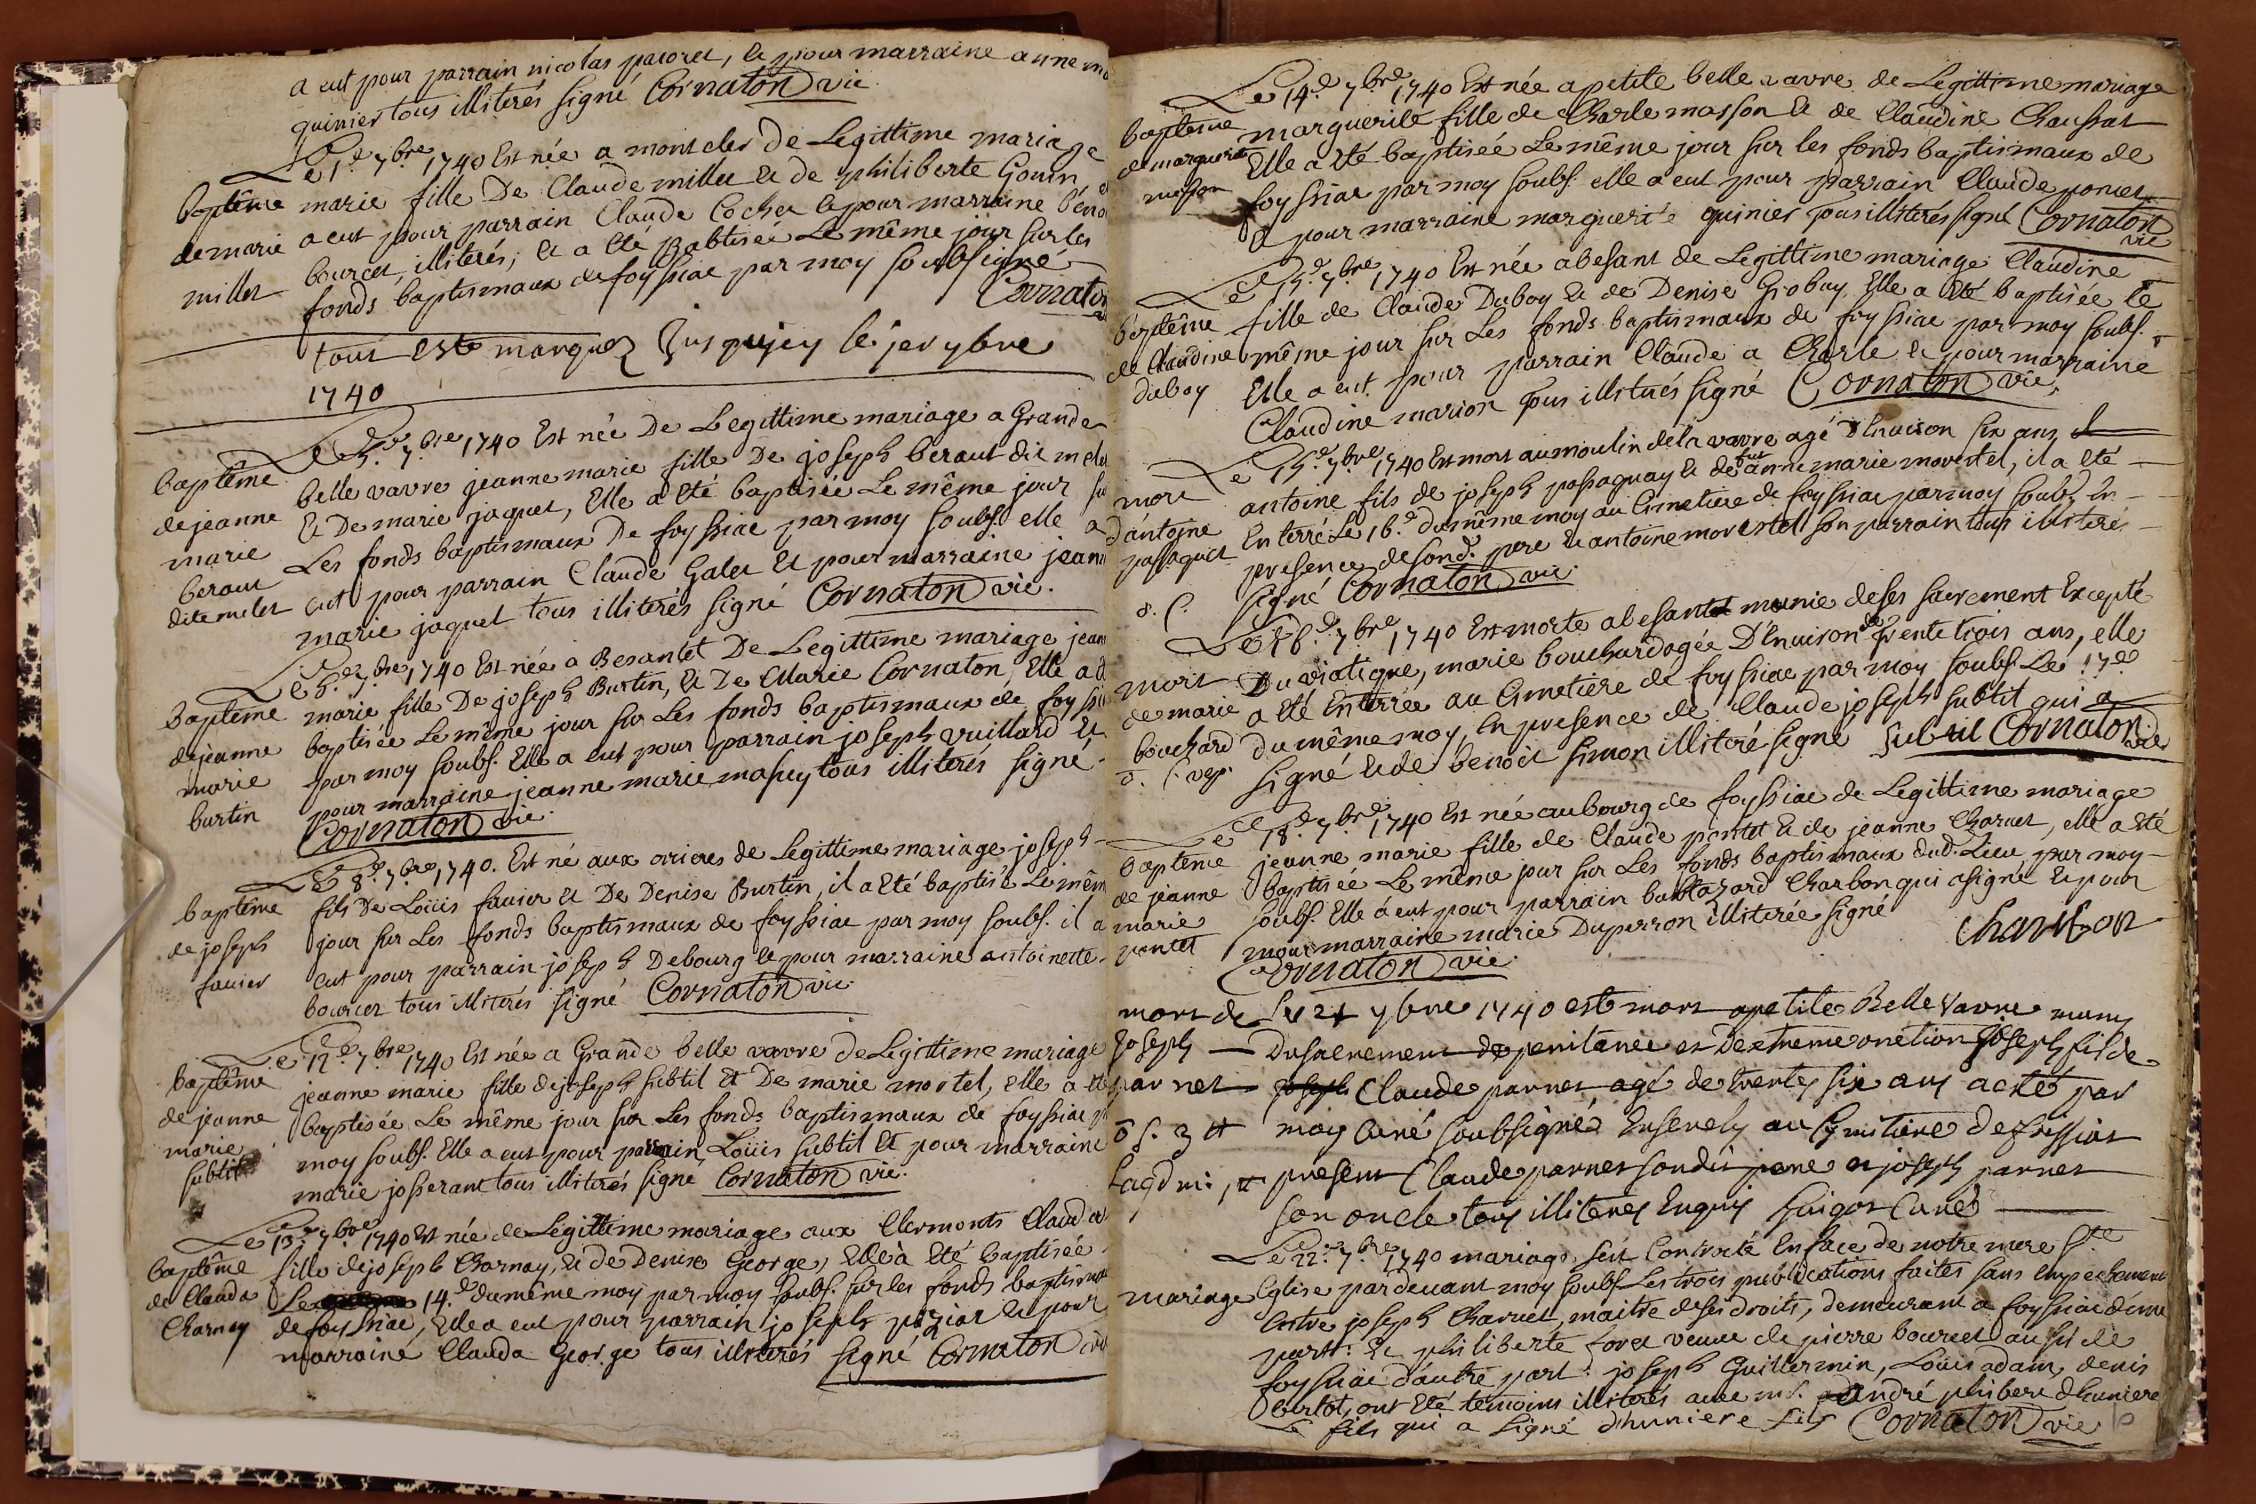 a eut pour parrain nicolas pacoret, et pour marraine anne
quinier tous illiterés signé Cornaton vic.
Le 1.er 7.bre 1740 Est née a montcler de Legittime mariage
baptême marie fille De Claude millet et de philiberte Gouin
de marie a eut pour parrain Claude Cochet et pour marraine béno
millet bourcet, illiterés, et a Eté Babtisée Le même jour sur les
fonds baptismaux de foyssiac par moy soubsigné
Cornaton
tout este marquez Jusqujcy le jer 7bre
1740
Le 5.e 7.bre 1740 Est née De Legittime mariage a Grande
baptême belle vavre jeanne marie fille De joseph beraut dit melet
de jeanne et De marie jaquet, Elle a Eté baptisée Le même jour sur
marie Les fonds baptismaux De foyssiac par moy soubs. elle a
beraut eut pour parrain Claude Galet et pour marraine jeanne
dite melet marie jaquet tous illiterés signé Cornaton vic.
Le 5.e 7.bre 1740 Est née a Besantet De Legittime mariage jeanne
Bapteme marie fille De joseph Burtin, et De Marie Cornaton, Elle a été
de jeanne baptisée Le même jour sur Les fonds baptismaux de foyssiac
marie par moy soubs. Elle a eut pour parrain joseph vuillard et
burtin pour marraine jeanne marie masuy tous illiterés signé
Cornaton vic.
Le 8.e 7.bre 1740. Est né aux orieres de Legittime mariage joseph
baptême fils De Loüis favier et De Denise Burtin, il a Eté baptisé Le même
de joseph jour sur Les fonds baptismaux de foyssiac par moy soubs. il a
favier eut pour parrain joseph Debourg et pour marraine antoinette
bourcet tous illiterés signé Cornaton vic.
Le 12.e 7.bre 1740 Est née a Grande belle vavre de Legittime mariage
baptême jeanne marie fille de joseph subtil et De marie mortel, elle a eté
de jeanne baptisée Le même jour sur Les fonds baptismaux de foyssiac par
marie moy soubs. Elle a eut pour parrain Loüis subtil et pour marraine
subtil marie josserant tous illiterés signé Cornaton vic.
Le 13.e 7.bre 1740 Est née de Legittime mariage aux Clermonts Clauda
baptême fille de joseph Charnay, et de Denise George, Elle a Eté baptisée
de Clauda Le 14.e du même moy par moy soubs. sur les fonds baptismaux
Charnay de foyssiac, Elle a eut pour parrain joseph poziat et pour
marraine Clauda George tous illiterés signé Cornaton vic
Le 14.e 7.bre 1740 Est née a petite belle vavre de Legittime mariage
baptême marguerite fille de Charle masson et de Claudine Chaussat
de marguerite Elle a Eté baptisée Le même jour sur les fonds baptismaux de
masson foyssiac par moy soubs. elle a eut pour parrain Claude poncet
et pour marraine marguerite quinier tous illiterés signé Cornaton
vic
Le 15.e 7.bre 1740 Est née a besant de Legittime mariage Claudine
baptême fille de Claude Duboy et de Denise Grobuy Elle a Eté baptisée le
de Claudine même jour sur Les fonds baptismaux de foyssiac par moy soubs.
duboy Elle a eut pour parrain Claude a Charle et pour marraine
Claudine marion tous illiterés signé Cornaton vic.
Le 15.e 7.bre 1740 Est mort au moulin de la vavre agé d'Environ six ans
mort antoine fils de joseph passaquay et de fut anne marie movestel, il a Eté
d'antoine Enterré Le 16.e du même moy au Cimetiere de foyssiac par moy soubs. En
passaquet presence de sond. pere et antoine movestel son parrain tous illiterés
signé Cornaton vic.
Le 18.e 7.bre 1740 Est morte a besantet munie de ses sacrement Excepté
mort Du viatique, marie bouchard agée D'Environ de trente trois ans, elle
de marie a Eté Enterrée au Cimetiere de foyssiac par moy soubs. Le 17.e
bouchard du même moy, En presence de Claude joseph subtil qui a
signé et de benoit simon illiteré signé Subtil Cornaton vic
Le 18.e 7.bre 1740 Est née au bourg de foyssiac de Legittime mariage
bapteme jeanne marie fille de Claude pontet et de jeanne Charvet, elle a Eté
de jeanne baptisée Le même jour sur Les fonds baptismaux dud. Lieu par moy
marie soubs. Elle a eut pour parrain baltazard Charbon qui a signé et pour
pontet marraine marie Duperron illiterée signé Charbon
Cornaton vic
mort de Le 21 7bre 1740 est mort a petite Belle Vavre muny
Joseph Du sacrement de penitance et D'extreme onction Joseph fils de
parnet Claude parnet, agé de trente six ans a été par
moy Curé soubsigné Ensevely au Cymitiere de foissiat
present Claude parnet sondit pere et joseph parnet
son oncle tous illiteres Enquis Guigot Curé
Le 22.e 7.bre 1740 mariage fut Contracté En face de notre mere Ste
mariage Eglise pardevant moy soubs. Les trois publications faites sans Empechement
Entre joseph Charvet, maitre de ses droits, demeurant a foyssiac d'une
part: et philiberte foret veuve de pierre bourcet aussi de
foyssiac d'autre part: joseph Guillermin, Loüis adam, denis
burtot, ont Eté temoins illiterés avec mr. andré philbert d'huniere
Le fils qui a signé d'huniere fils Cornaton vic